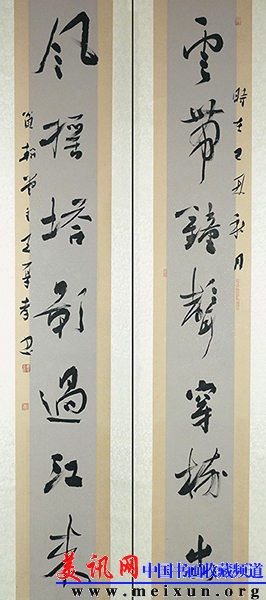 雲帶鐘聲穿樹出
時在己丑秋月
風搖塔影過江來
美讯网
中国书画收藏频道
www.meixun.org